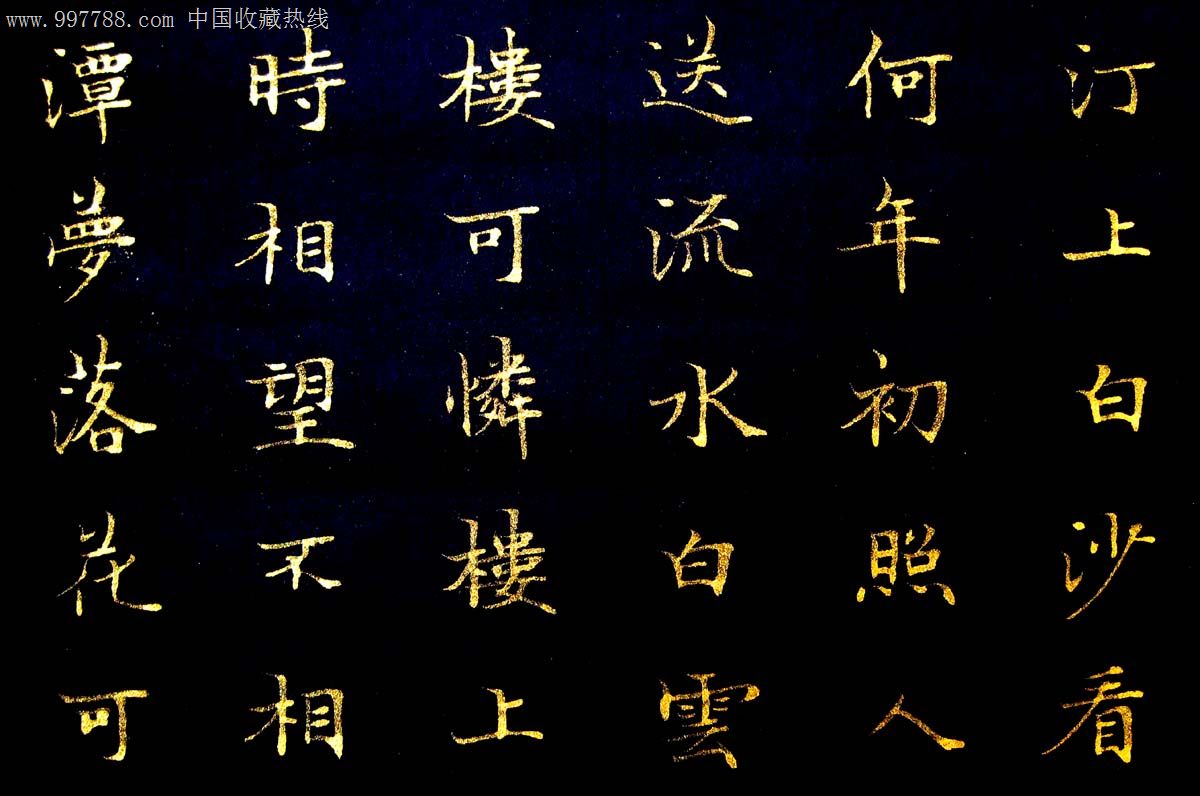 www.997788.com 中国收藏热线
汀上白沙看
何年初照人
送流水白雲
樓可憐樓上
時相望不相
潭夢落花可